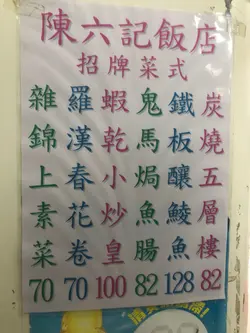 陳六記飯店
招牌菜式
炭燒五層樓
82
鐵板釀鯪魚
128
鬼馬焗魚腸
82
蝦乾小炒皇
100
羅漢春花卷
70
雜錦上素菜
70